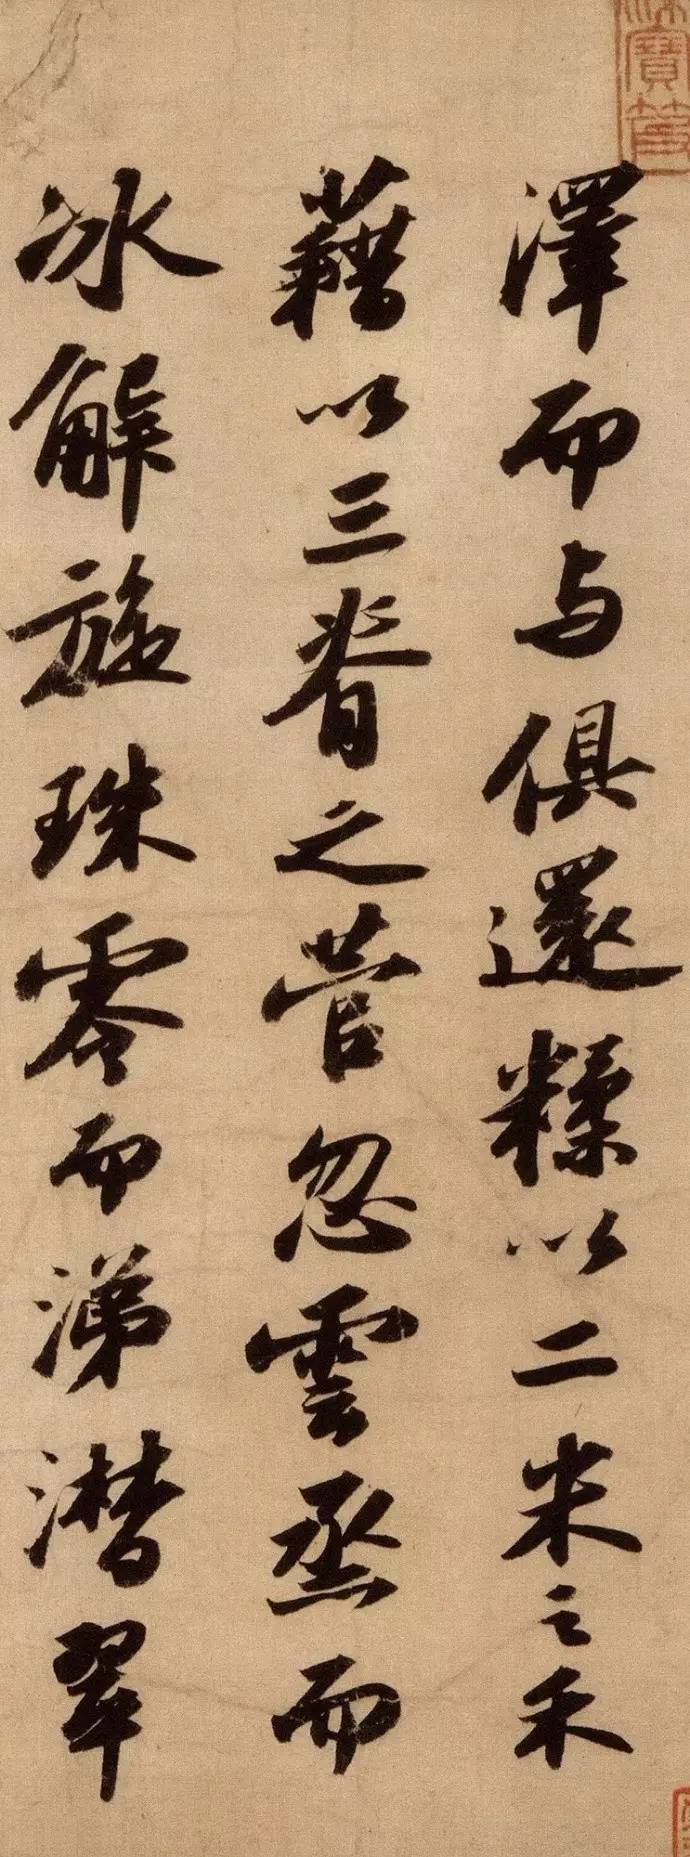 寶笈
澤而与俱還糅以二米之禾
藉以三脊之菅忽雲烝而
冰解旋珠零而涕潸翠